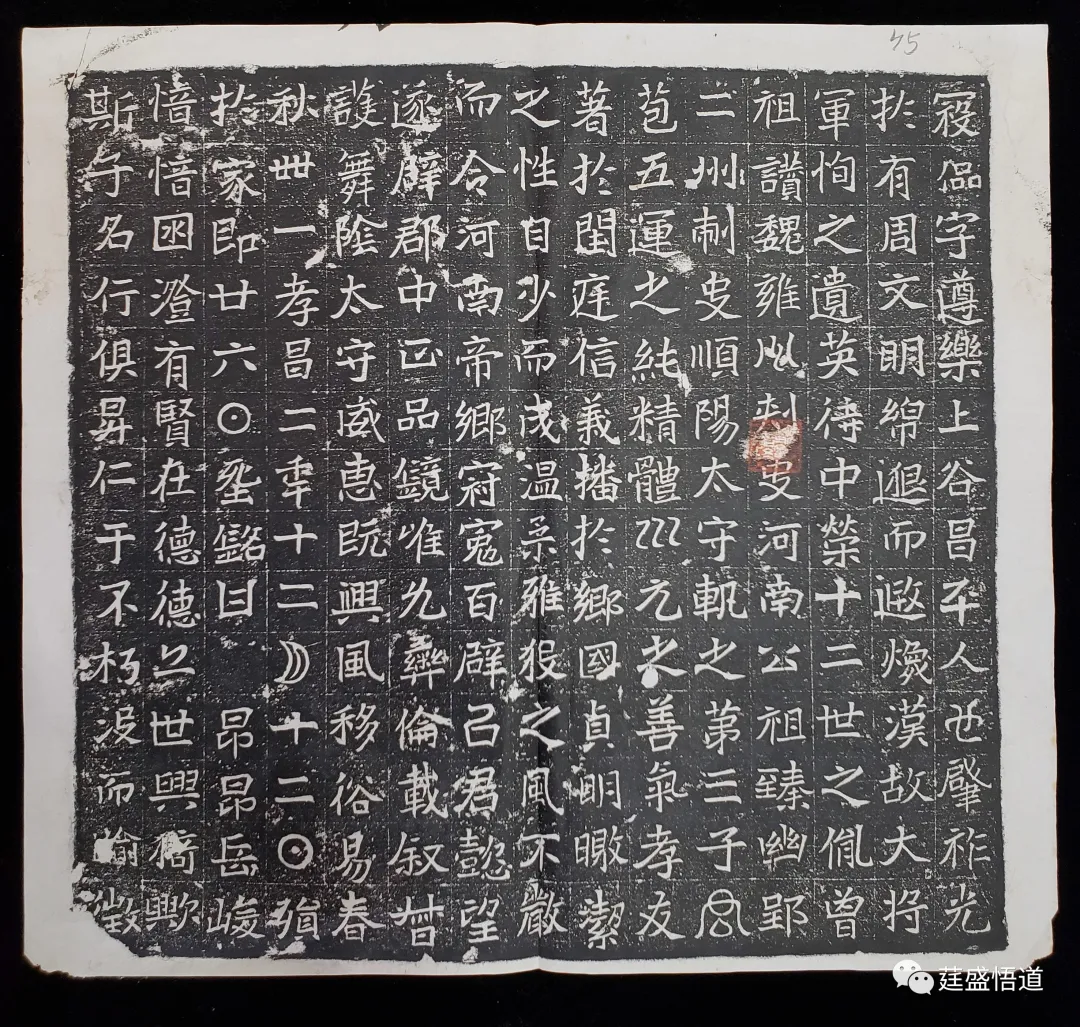 75
寇偘字遵樂上谷昌平人也肇祚光
扵有周文明綿邈而遐煥漢故大將
軍恂之遺英侍中榮十二世之胤曾
祖讃魏雍州刺史河南公祖臻幽郢
二州刺史順陽太守軌之第三子公
苞五運之純精體三元之善氣孝友
著扵閨庭信義播扵鄉國貞明曒潔
之性自少而成溫柔雅之風不嚴
而合河南帝鄉冠百辟己君懿望
遂辟郡中正品鏡唯允彝倫載叙督
護舞陰太守威惠既興風移俗易春
秋卌一孝昌二年十二月十二日殯
扵家即廿六日窆銘曰 昂昂岳峻
愔愔囦澄有賢在德德之世興猗歟
斯子名行俱昇仁于不朽没而喻徵
莛盛悟道